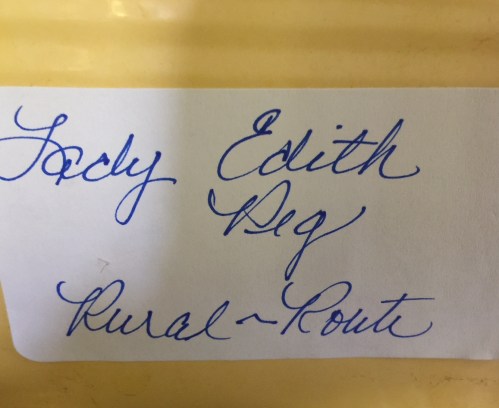 Lady Edith
Peg
Rural ~ Route